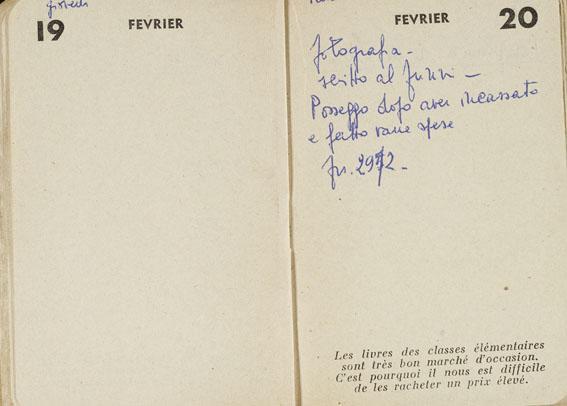 giovedì
19
FEVRIER
FEVRIER
20
fotografia -
scritto al
Posseggo dopo aver incassato
e fatto varie spese
fr. 2972 -
Les livres des classes élémentaires
sont très bon marché d'occasion.
C'est pourquoi il nous est difficile
de les racheter un prix élevé.